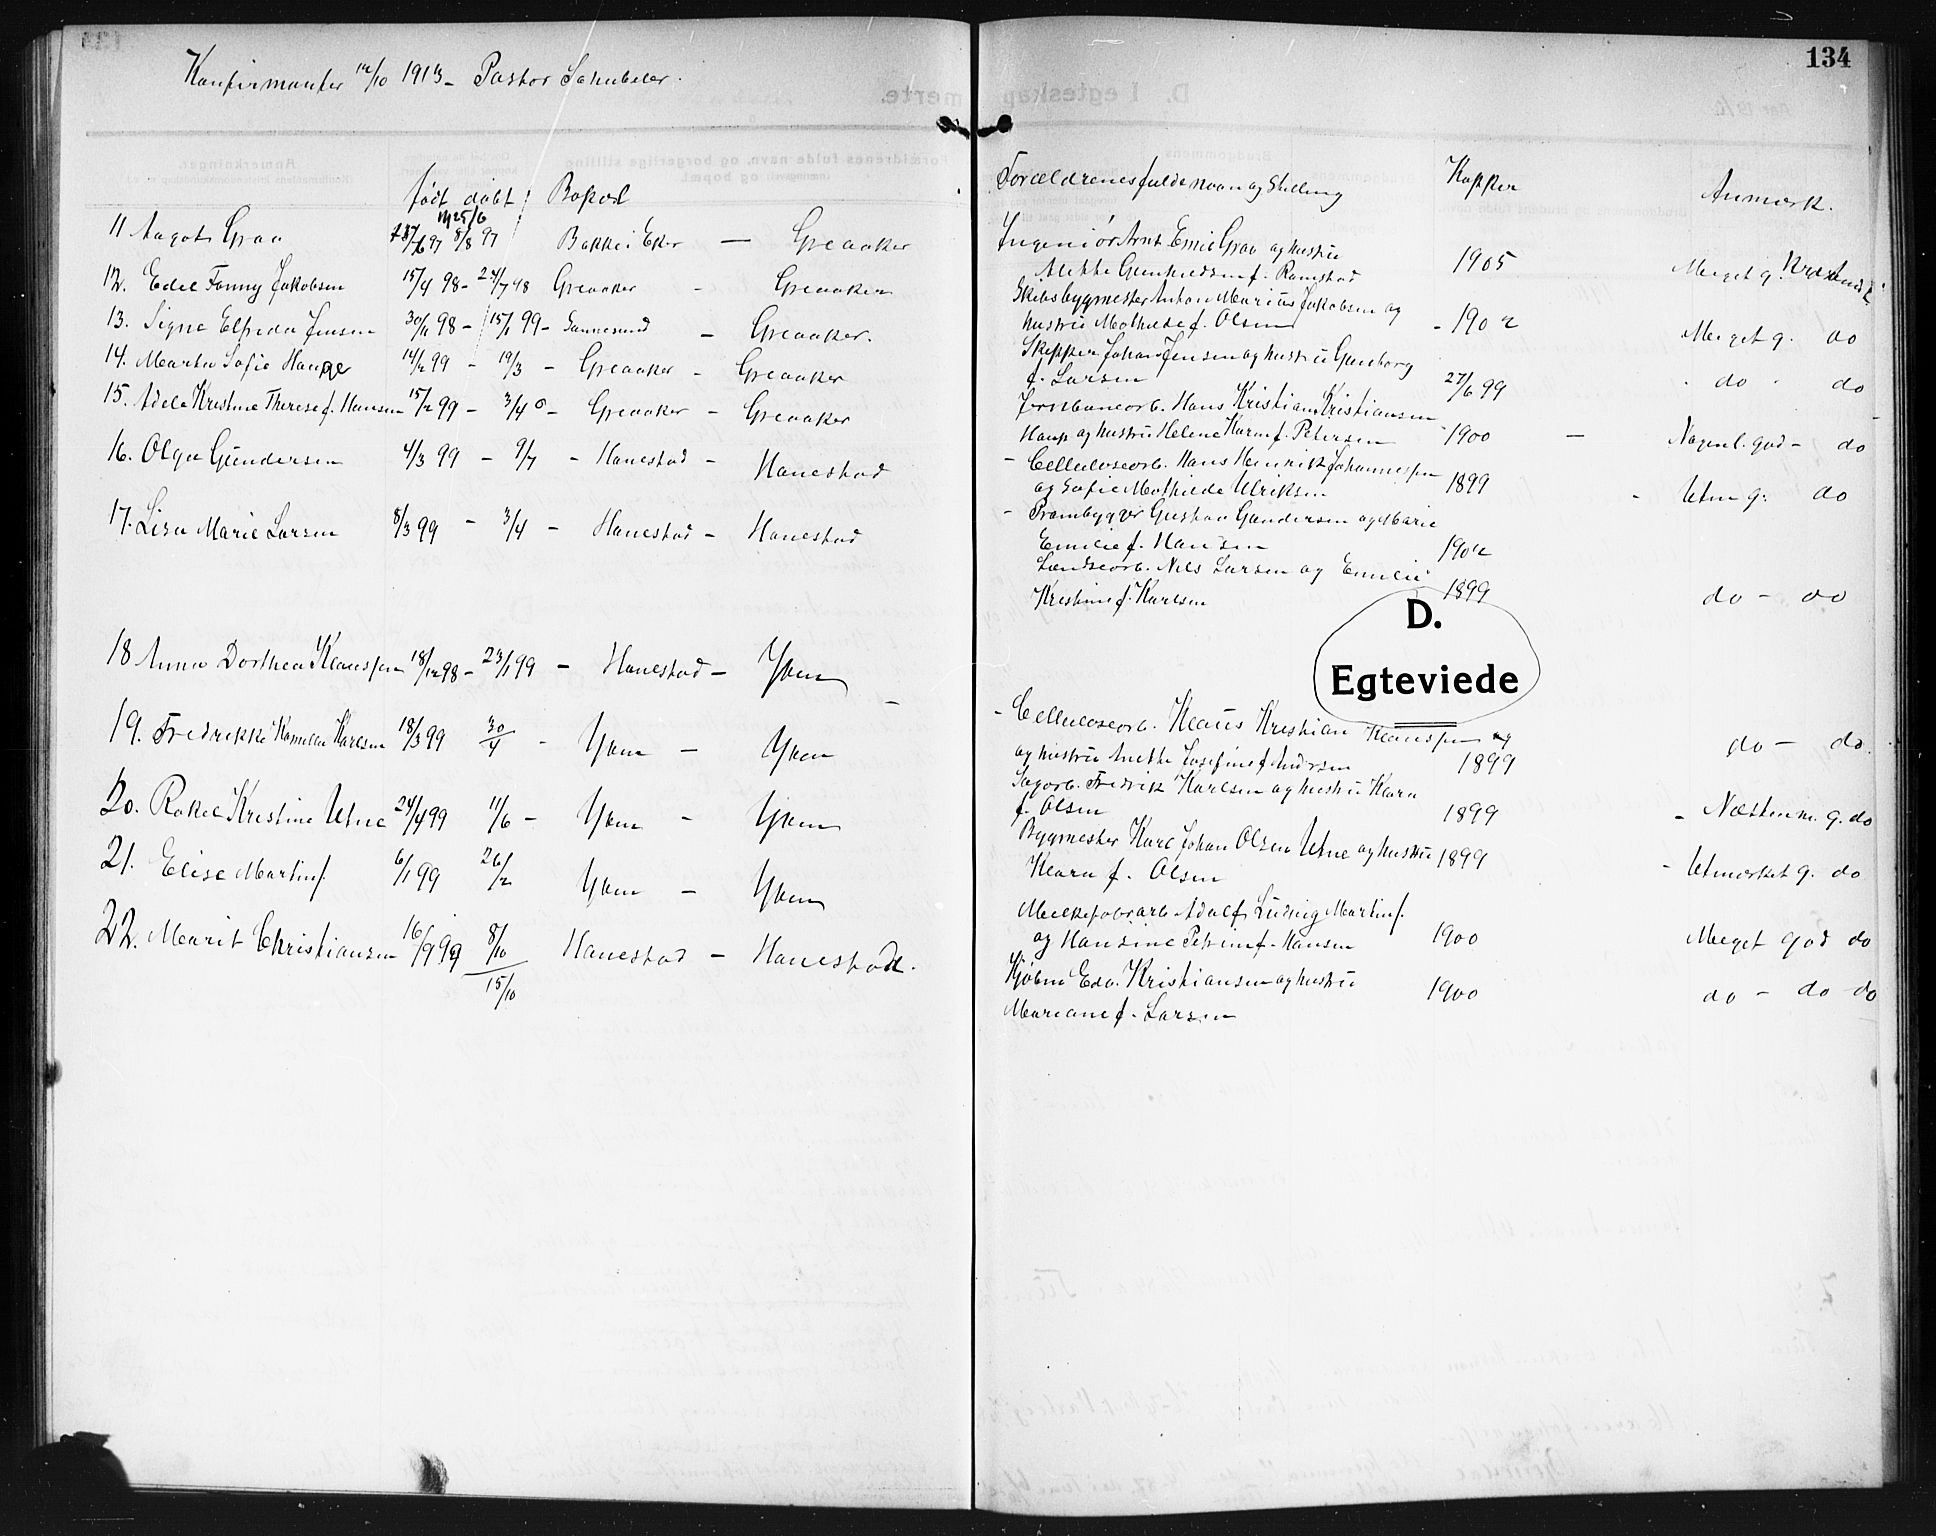 134
Konfirmanter 12/10 1913 - Pastor Schubeler.
født døbt Bopæl
11 Aagot Graa 97 8/8 97 Bakke i Eker — Greaaker
12. Edel Fanny Jakobsen 15/4 98 - 24/7 98 Greaaker - Greaaker
13. Signe Elfrida Jensen 30/11 98 - 15/1 99 - Sannesund - Greaaker.
14. Marta Sofie Hauge 14/2 99 - 19/3 - Greaaker - Greaaker
15. Adele Kristine Therese J. Hansen 15/2 99 - 3/4 - Greaaker - Greaaker
16. Olga Gundersen 4/3 99 - 9/7 - Hanestad - Hanestad
17. Lisa Marie Larsen 8/3 99 - 3/4 - Hanestad - Hanestad
18 Anna Dorthea Klausen 18/12 98 - 23/1 99 - Hanestad - Yven
19. Fredrikke Kamilla Karlsen 18/3 99 30/4 - Yven - Yven
20. Rakel Kristine Utne 24/4 99 11/6 - Yven - Yven
21. Elise Martins. 6/1 99 26/2 Yven - Yven
22. Marit Christiansen 16/9 99 8/10 Hanestad - Hanestad.
15/10
Forældrenes fulde navn og Stilling Kopper Anmerk.
Ingeniör Arnt Emil Graa og hustru
f. Ramstad 1905 Meget g.
Skibsbygmester Anton Marius Jakobsen og
hustru Mathilde f. Olsen - 1902 Meget g. do
Skipper Johan Jensen og hustru Gunborg
f. Larsen 27/6 99 - do - do
Jernbanearb. Hans Kristian Kristiansen
Haug og hustru Helene Karin f. Petersen 1900 — Nogenl. god - do
- Cellulosearb. Hans Henrik Johannessen
og Sofie Mathilde Ulriksen 1899 - Utm g. do
- Prambygger Gustav Gundersen og Marie
Emilie f. Hansen 1902
Landsearb. Nils Larsen og Emilie
Kristine f. Karlsen 1899 do - do
D.
Egteviede
- Cellulosearb. Klaus Kristian Klausen og
og hustru Anette Josefine f. Andersen 1899 do - do.
Sagarb. Fredrik Karlsen og hustru Klara
f. Olsen 1899 - Næsten m. g. do
Bygmester Karl Johan Olsen Utne og hustru 1899
Klara f. Olsen - Utmerket g. do
Melkefabrarb. Adolf Ludvig Martins.
og Hansine Petrine f. Hansen 1900 Meget god do
Kjøbm Edv. Kristiansen og hustru
Mariane f. Larsen 1900 do - do do